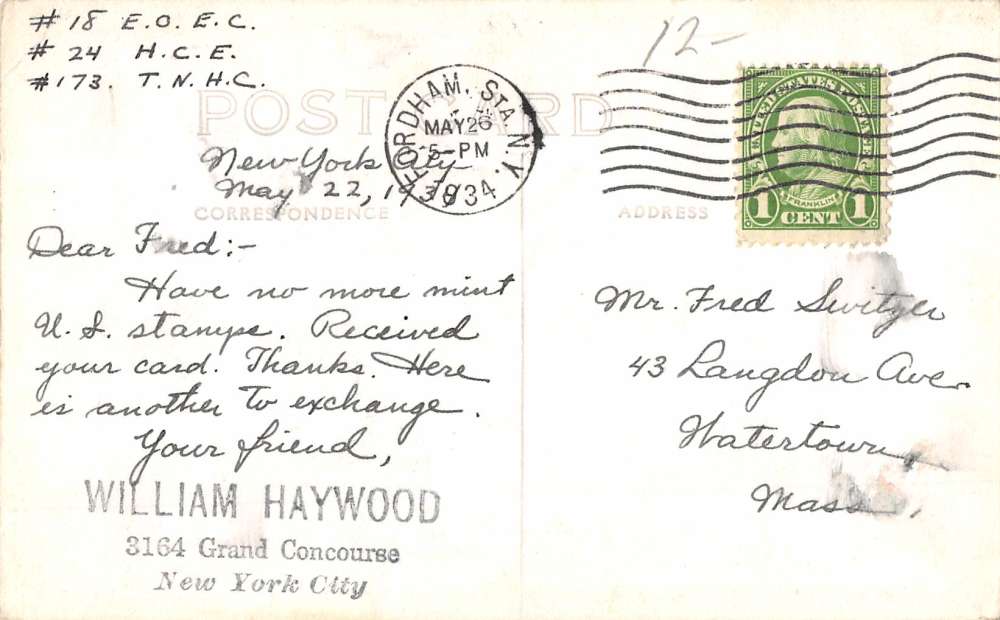 # 18 E. O. E. C.
# 24 H. C. E.
#173. T. N. H. C.
12-
POST CARD
New York City
May 22, 1934
CORRESPONDENCE
Dear Fred:-
Have no more mint
U. S. stamps. Received
your card. Thanks. Here
is another to exchange.
Your friend,
WILLIAM HAYWOOD
3164 Grand Concourse
New York City
FORDHAM. STA. N.Y.
MAY 26
5-PM
1934
UNITED STATES POSTAGE
FRANKLIN
1 CENT 1
ADDRESS
Mr. Fred Switzer
43 Langdon Ave.
Watertown,
Mass.